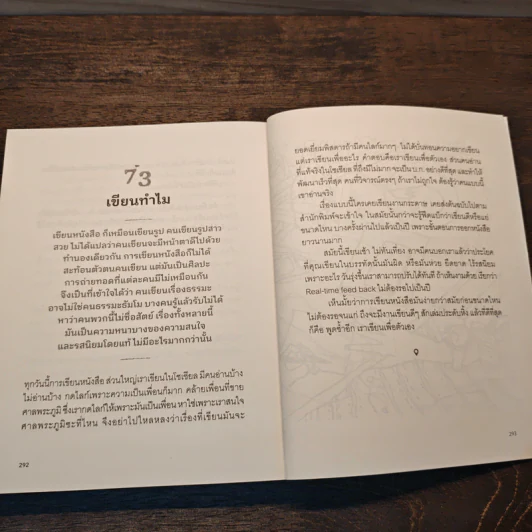 73
เขียนทำไม
เขียนหนังสือ ก็เหมือนเขียนรูป คนเขียนรูปสาว
สวย ไม่ได้แปลว่าคนเขียนจะมีหน้าตาดีไปด้วย
ทำนองเดียวกัน การเขียนหนังสือก็ไม่ได้
สะท้อนตัวตนคนเขียน แต่มันเป็นศิลปะ
การถ่ายทอดที่แต่ละคนมีไม่เหมือนกัน
จึงเป็นที่เข้าใจได้ว่า คนเขียนเรื่องธรรมะ
อาจไม่ใช่คนธรรมะธัมโม บางคนรู้แล้วรับไม่ได้
หาว่าคนพวกนี้ไม่ซื่อสัตย์ เรื่องทั้งหลายนี้
มันเป็นความหนาบางของความสนใจ
และรสนิยมโดยแท้ ไม่มีอะไรมากกว่านั้น
ทุกวันนี้การเขียนหนังสือ ส่วนใหญ่เราเขียนในโซเชียล มีคนอ่านบ้าง
ไม่อ่านบ้าง กดไลก์เพราะความเป็นเพื่อนก็มาก คล้ายเพื่อนที่ขาย
ศาลพระภูมิ ซึ่งเรากดไลก์ให้เพราะมันเป็นเพื่อน หาใช่เพราะเราสนใจ
ศาลพระภูมิซะที่ไหน จึงอย่าไปไหลหลงว่าเรื่องที่เขียนมันจะ
292
ยอดเยี่ยมพิสดารถ้ามีคนไลก์มากๆ ไม่ได้บั่นทอนความอยากเขียน
แต่เราเขียนเพื่ออะไร คำตอบคือเราเขียนเพื่อตัวเอง ส่วนคนอ่าน
ที่แท้จริงในโซเชียล ที่ถึงมีไม่มากจะเป็น บ.ก. อย่างดีที่สุด และทำให้
พัฒนาเร็วที่สุด คนที่วิจารณ์ตรงๆ ถ้าเราไม่ถูกใจ ต้องรู้ว่าคนแบบนี้
เขาอ่านจริง
เรื่องแบบนี้ใครเคยเขียนงานกระดาษ เคยส่งต้นฉบับไปตาม
สำนักพิมพ์จะเข้าใจ ในสมัยนั้นกว่าจะรู้ฟีดแบ็กว่าเขียนดีหรือแย่
ขนาดไหน บางครั้งผ่านไปแล้วเป็นปี เพราะขั้นตอนการออกหนังสือ
ยาวนานมาก
สมัยนี้เขียนเช้า ไม่ทันเที่ยง อาจมีคนบอกเราแล้วว่าประโยค
ที่คุณเขียนในบรรทัดนั้นมันผิด หรือมันห่วย ยืดยาด ไร้รสนิยม
เพราะอะไร วันรุ่งขึ้นเราสามารถปรับได้ทันที ถ้าเห็นงามด้วย เรียกว่า
Real-time feed back ไม่ต้องรอไปเป็นปี
เห็นมัยว่าการเขียนหนังสือมันง่ายกว่าสมัยก่อนขนาดไหน
ไม่ต้องรอจนแก่ ถึงจะมีงานเขียนดีๆ สักเล่มประดับหิ้ง แล้วที่ดีที่สุด
ก็คือ พูดซ้ำอีก เราเขียนเพื่อตัวเอง